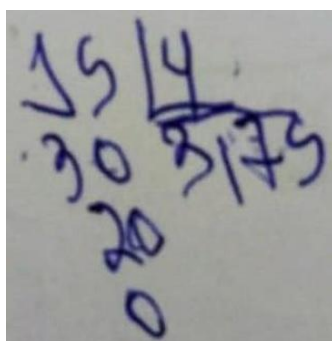 15 4
30 3,75
20
0